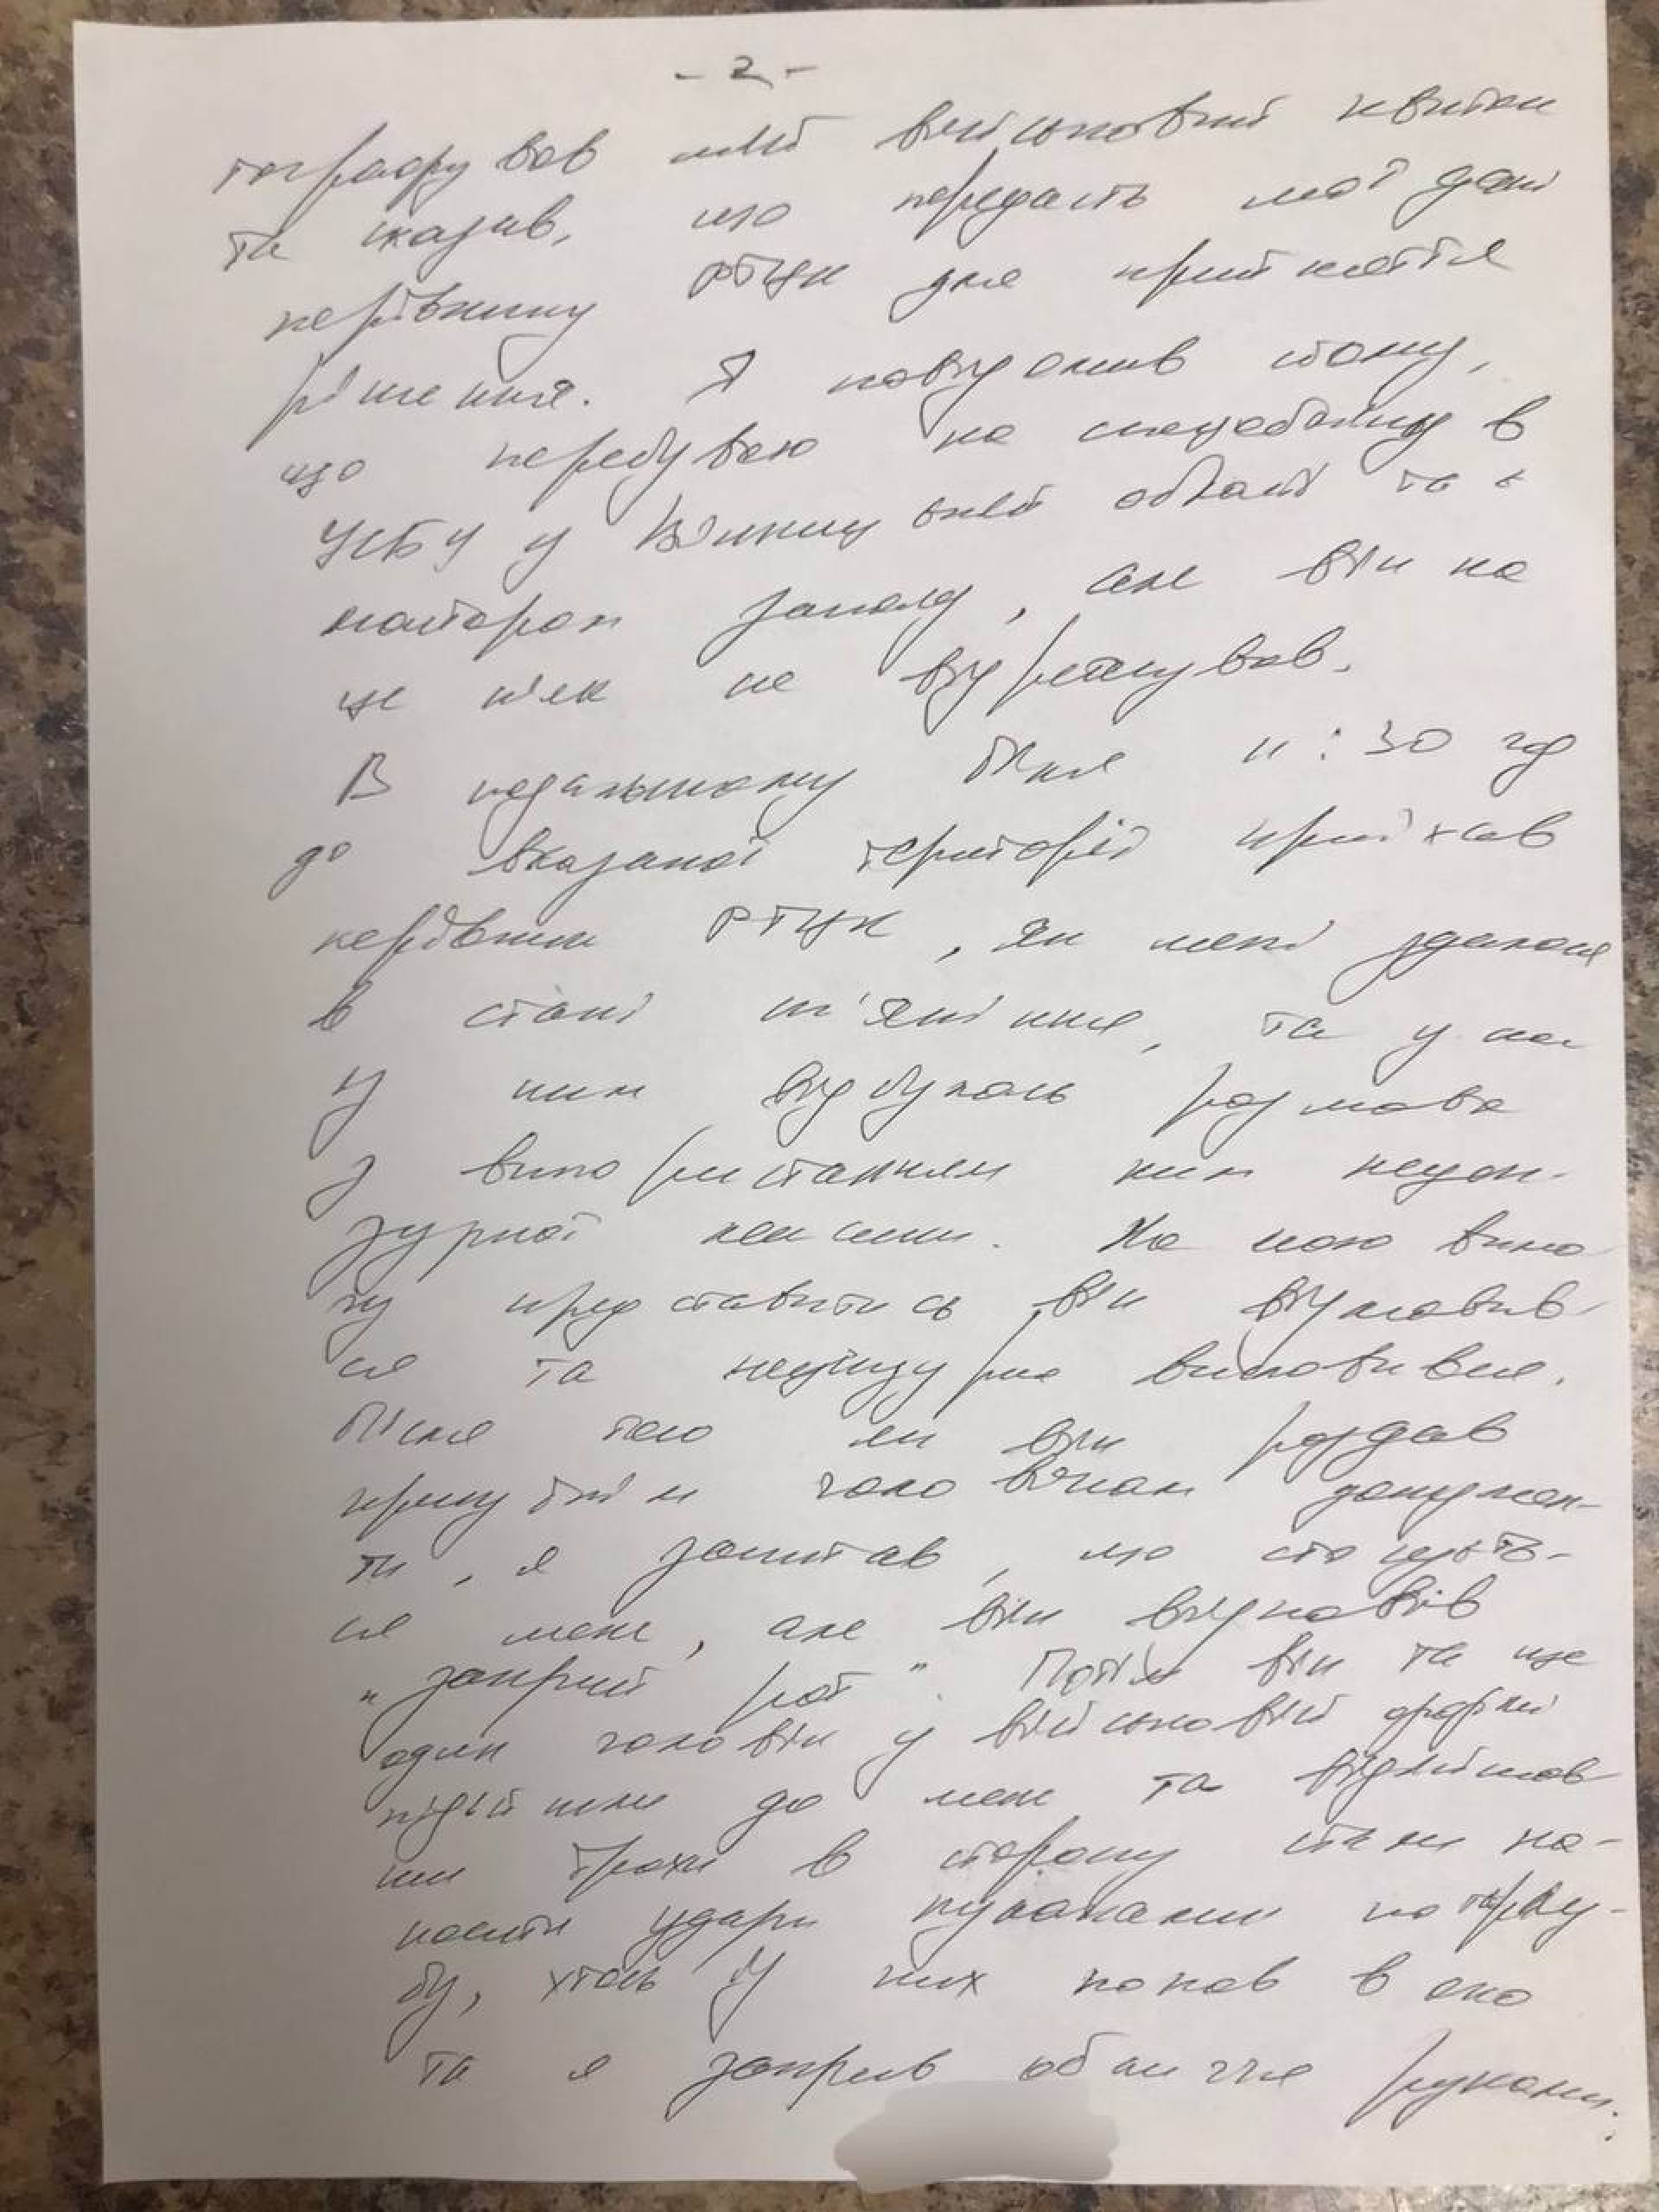 - 2 -
тографував мій військовий квиток
та сказав, що передасть мої дані
керівнику РТЦК для прийняття
рішення. Я повідомив йому,
що перебуваю на спецобліку в
УСБУ у Вінницькій області та є
майором запасу, але він на
це ніяк не відреагував.
В подальшому біля 11:30 год
до вказаної території приїхав
керівник РТЦК, як мені здалося
в стані сп'яніння, та у нас
із ним відбулась розмова
з використанням ним нецен-
зурної лексики. На мою вимо-
гу представитись він відмовив-
ся та нецензурно висловився.
Після того як він роздав
присутнім чоловікам докумен-
ти, я запитав, що стосуєть-
ся мене, але він відповів
„закрий рот". Потім він та ще
один чоловік у військовій формі
підійшли до мене та відвівши
трохи в сторону стали на-
носити удари кулаками по тулу-
бу, хтось із них попав в око
та я закрив обличчя руками.